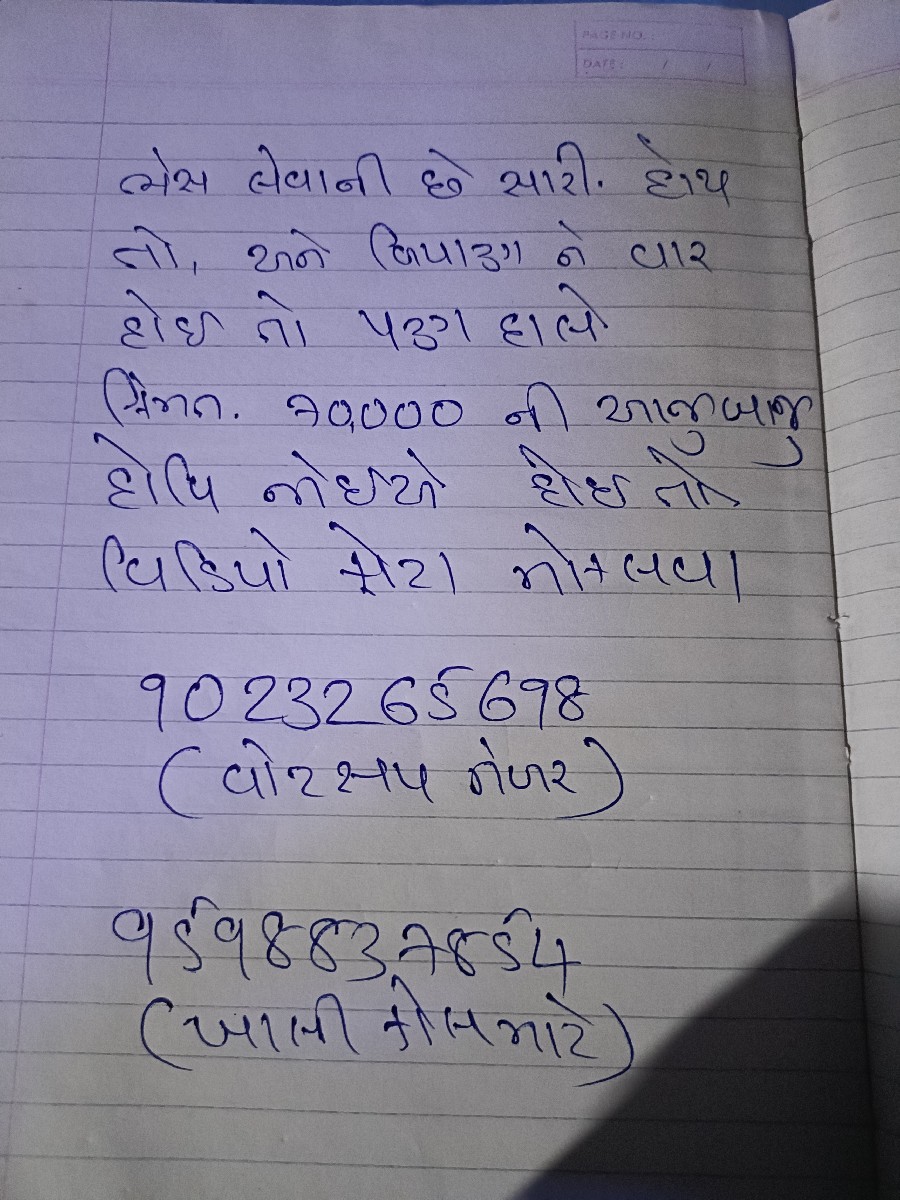 PAGE NO.:
DATE: / /
ભેસ લેવાની છે સારી. હોય
તો, અને વિયાણ ને વાર
હોઈ તો પણ હાલે
કિંમત. 70,000 ની આજુબાજુ
હોવિ જોઈએ હોઈ તો
વિડિયો ફોટા મોકલવા
9023265698
(વોટસઅપ નંબર)
9598837854
(ખાલી કોલ માટે)